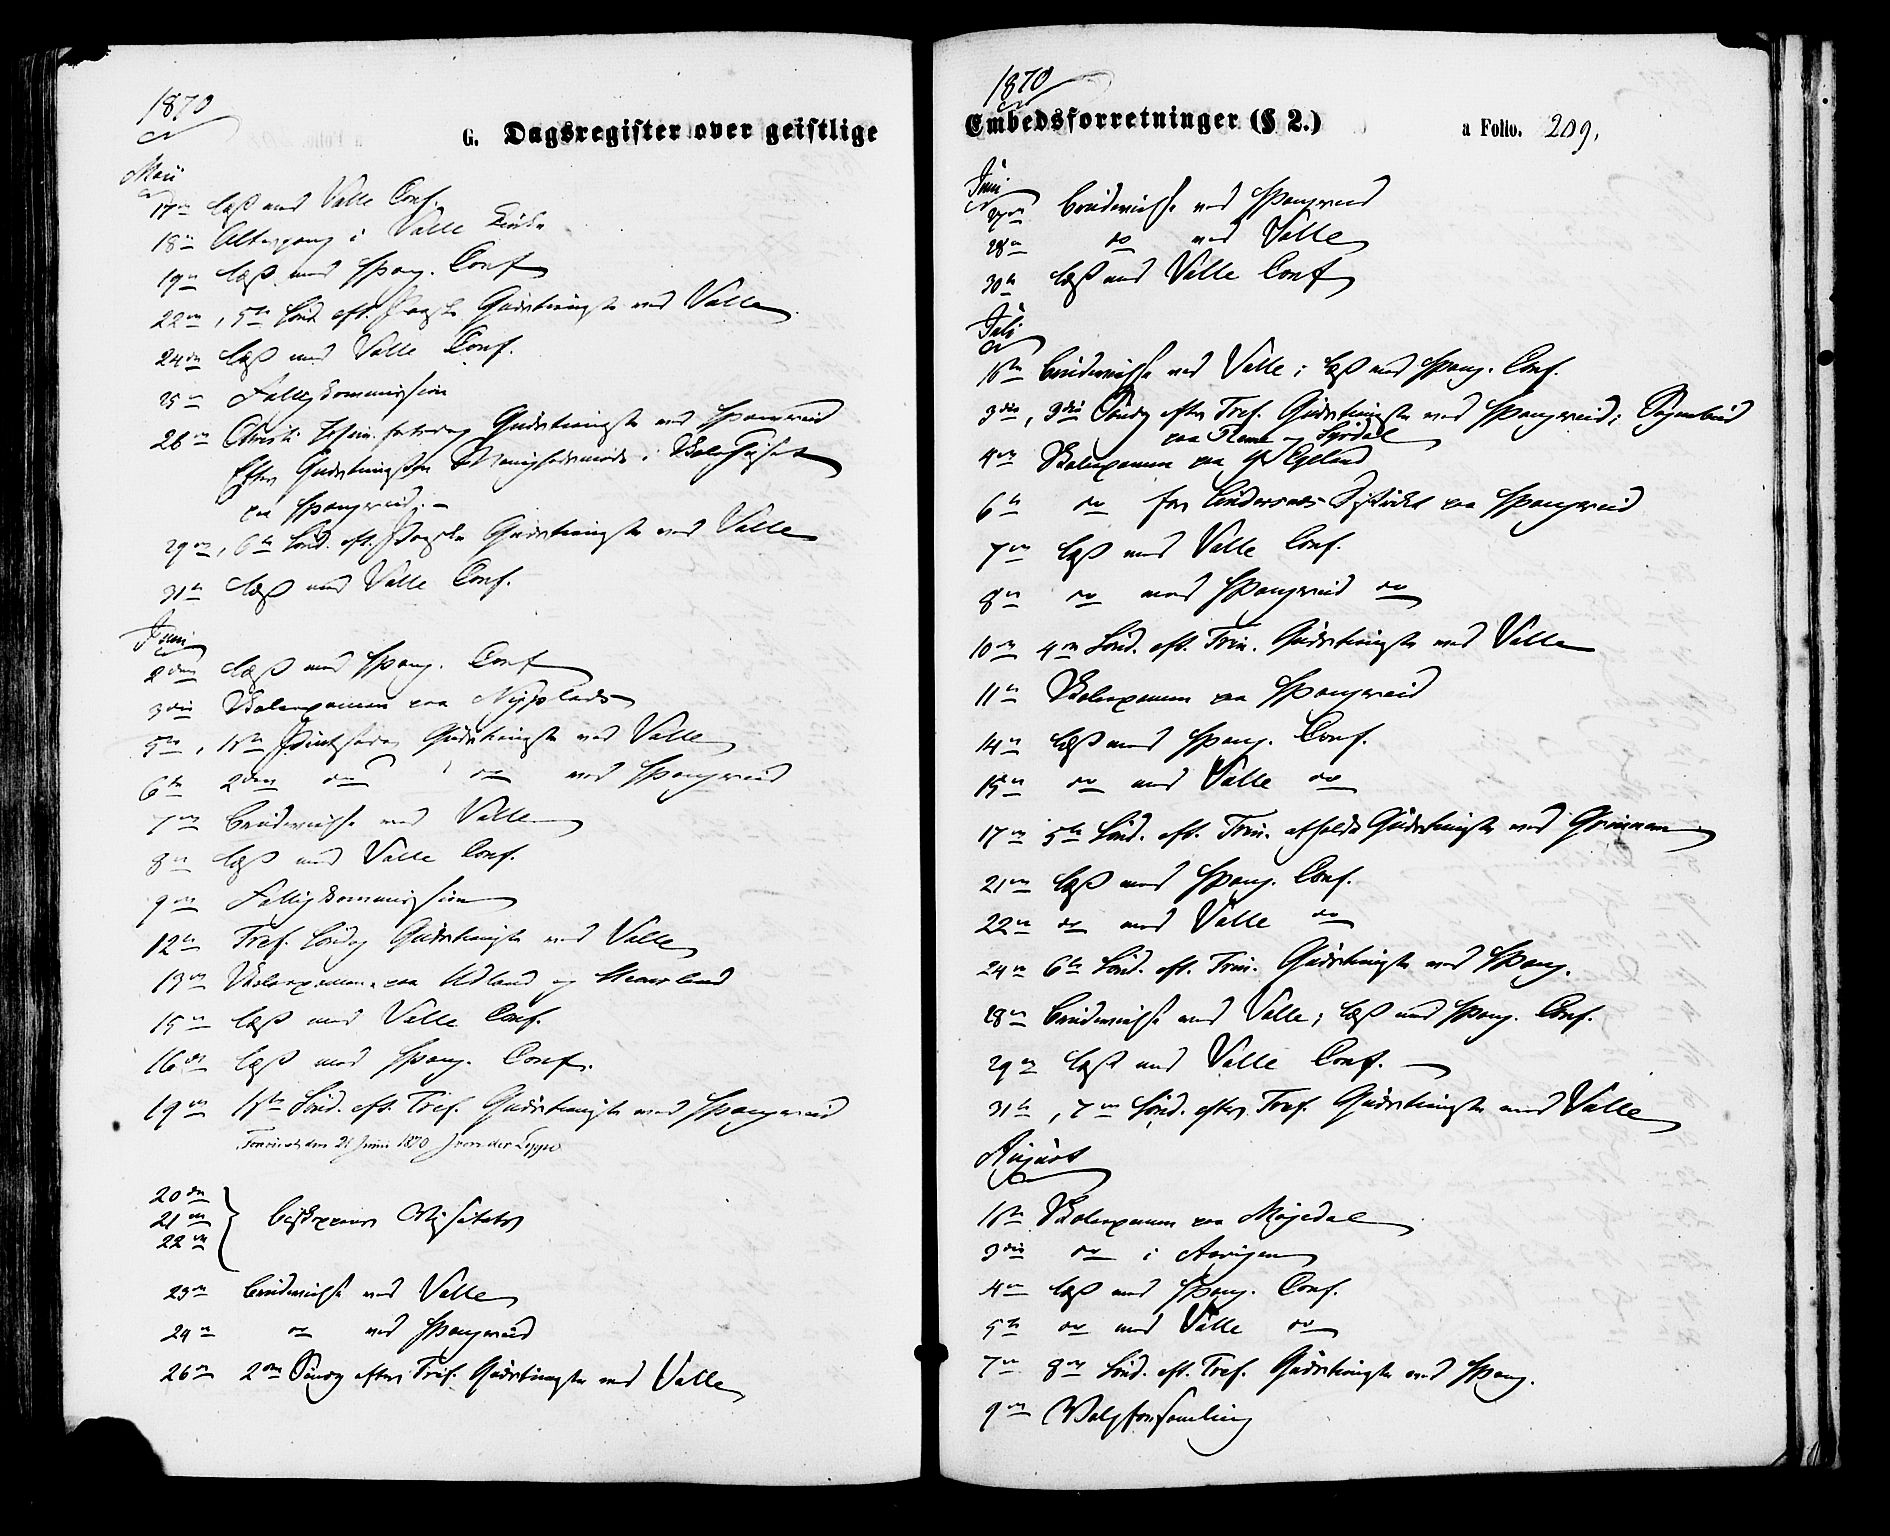 1870
G. Dagsregister over geistlige
Mai
17de læst med Valle Conf.
18de Altergang i Valle Kirke
19de læst med Spang. Conf
22de, 5te Sönd. eft. Paaske Gudstieneste ved Valle
24de læst med Valle Conf.
25de Fattigkommission
26de Christi Himmelfartsdag Gudstieneste ved Spangereid
Efter Gudstienesten Menighedsmöde i
paa Spangereid. –
29de, 6te Sönd. eft. Paaske Gudstieneste ved Valle
31te læst med Valle Conf.
Juni
2den læst med Spang. Conf
3die Skoleexamen paa Nyplads
5te, 1ste Pintsedag Gudstieneste ved Valle
6te 2den do do ved Spangereid
7de Brudevielse ved Valle
8de læst med Valle Conf.
9de Fattigkommission
12te Tref. Söndag Gudstieneste ved Valle
13de Skoleexamen paa Udland og
15de læst med Valle Conf.
16de læst med Spang. Conf.
19de 1ste Sönd. eft. Tref. Gudstieneste ved Spangereid
den 21 Juni 1870 J von der Lippe
20de
21de } Biskopens Visitats
22de
23de Brudevielse ved Valle
24de do ved Spangereid
26de 2den Söndag efter Tref. Gudstieneste ved Valle
1870
Embedsforretninger (§ 2.) a Folio. 209.
Juni
27de Brudevielse ved Spangereid
28de do ved Valle
30te læst med Valle Conf
Juli
1ste Brudevielse ved Valle; læst med Spang. Conf.
3die, 3die Söndag efter Tref. Gudstieneste ved Spangereid; Sognebud
paa og
4de Skoleexamen paa
6te do for Lindesnæs District paa Spangereid
7de læst med Valle Conf.
8de do med Spangereid do
10de 4de Sönd. eft. Trin. Gudstieneste ved Valle
11te Skoleexamen paa Spangereid
14de læst med Spang. Conf.
15de do med Valle do
17de 5te Sönd. eft. Trin. afholdt Gudstieneste ved
21de læst med Spang. Conf.
22de do med Valle do
24de 6te Sönd. eft. Trin. Gudstieneste ved Spang.
28de Brudevielse ved Valle; læst med Spang. Conf.
29de læst med Valle Conf.
31te, 7de Sönd. efter Tref. Gudstieneste ved Valle
August
1ste Skoleexamen paa
3die do i
4de læst med Spang. Conf.
5te do med Valle do
7de 8de Sönd. eft. Tref. Gudstieneste ved Spang.
9de Valgforsamling